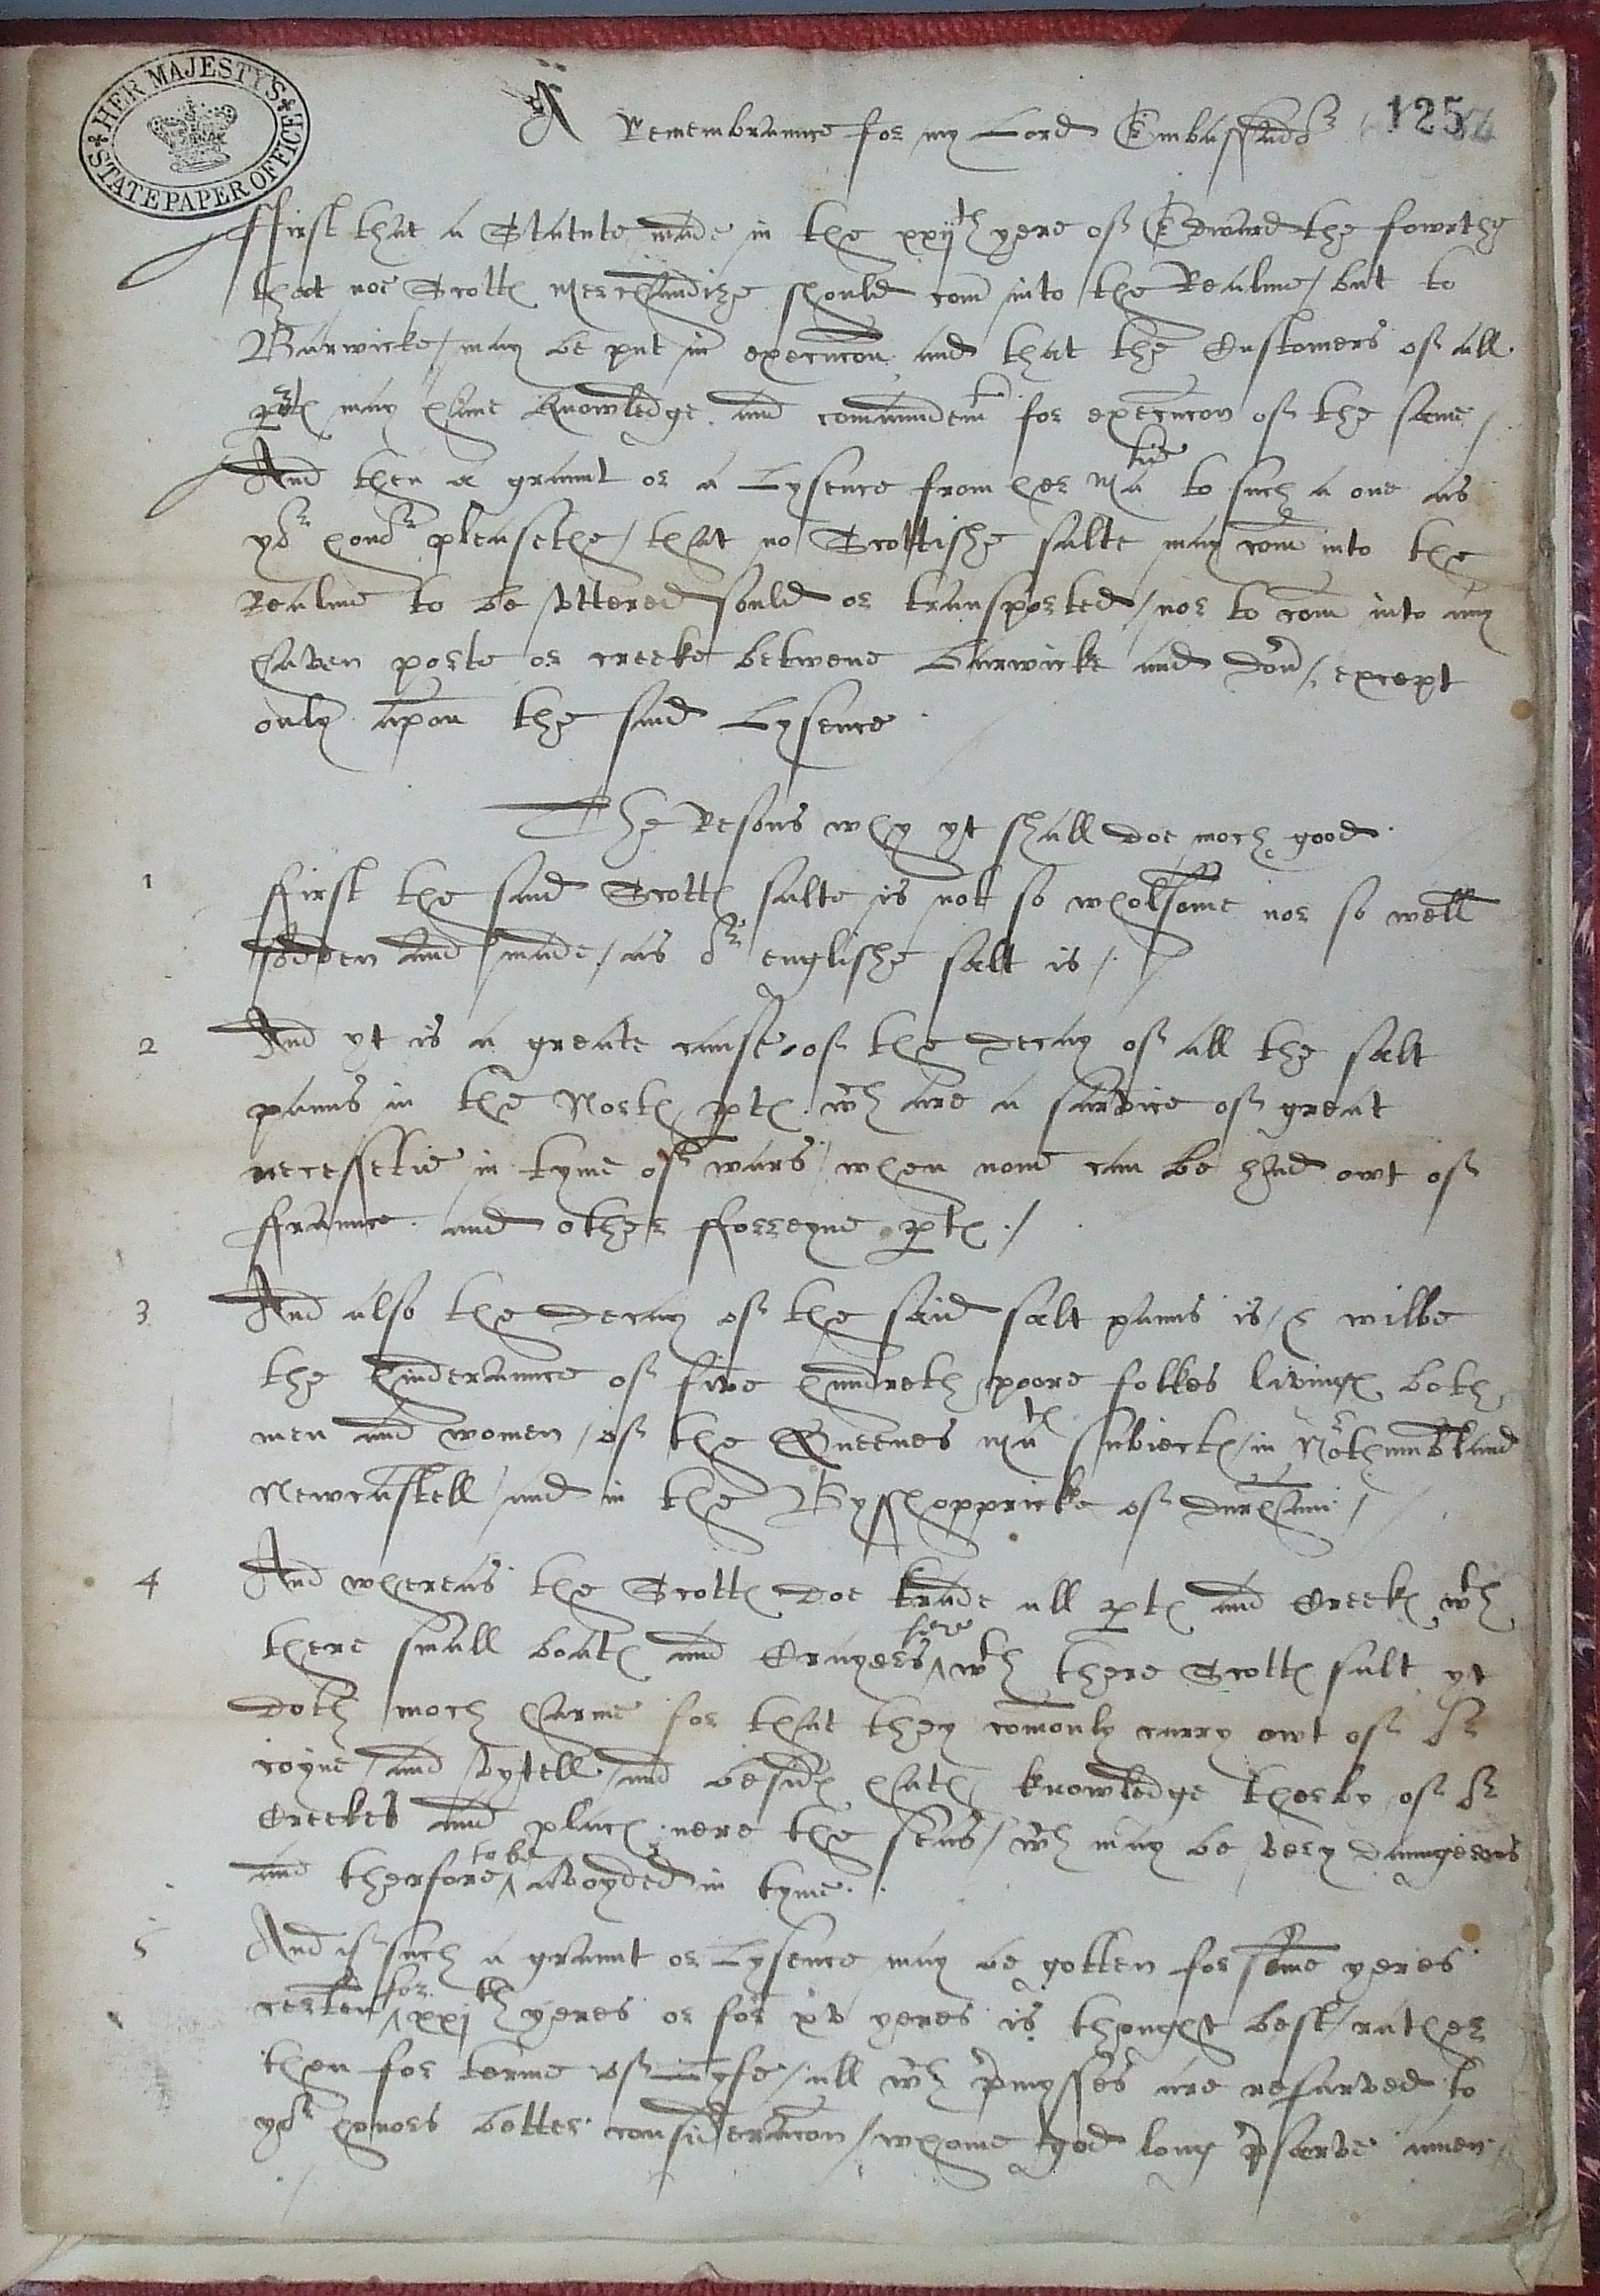 HER MAJESTY'S STATE PAPER OFFICE
125
A Remembraunce for my Lord Embassado^r
ffirst that a Statute made in the xxij^th yere of Edward the fowrthe
that noe Scott(es) Merchandize should com into the Realme / but to
Barwicke / may be put in execucon and that the Customers of all
port(es) may have knowledge and comaundem^t for execucon of the same /
And then a graunt or a Lysence from her Ma^tie to such a one as
yo^r hono^r pleasethe / that no Scottishe salte may com into the
Realme to be vttered sould or transported / nor to com into any
haven porte or creeke betwene barwicke and Dou^r / except
only apon the said Lysence
The Resons why yt shall doe moch good
1 first the said Scott(es) salte is not so wholsome nor so well
sodden and made / as o^r englishe salt is /
2 And yt is a greate cause of the decay of all the salt
panns in the North p^t(es) w^ch are a sarvice of great
necessetie in tyme of wars / when none can be had owt of
ffraunce and other fforreyne p^t(es) /
3 And also the decay of the said salt panns is / & wilbe
the hinderaunce of five hundreth poore folkes living(es) both
men and women / of the Queenes Ma^t(es) subiect(es) / in Northumbland
Newcastell / and in the Bysshoppricke of Durham /
4 And whereas the Scott(es) doe trade all p^t(es) and Creek(es) w^th
there small boat(es) and Crayers ^here w^th there Scott(es) salt yt
doth moch harme for that they comonly carry owt of o^r
coyne / and vytell / and besid(es) hath knowledge therby of o^r
Creekes and plac(es) nere the seas / w^ch may be very daungerous
and therfore ^to be avoyded in tyme
5 And if such a graunt or Lysence may be gotten for some yeres
certen ^for xxj^th yeres or for xv yeres is thought best / rather
then for terme of Lyfe / all w^ch p^rmysses are resarved to
yo^r honors better consideracon / whome god long p^rsarve amen /